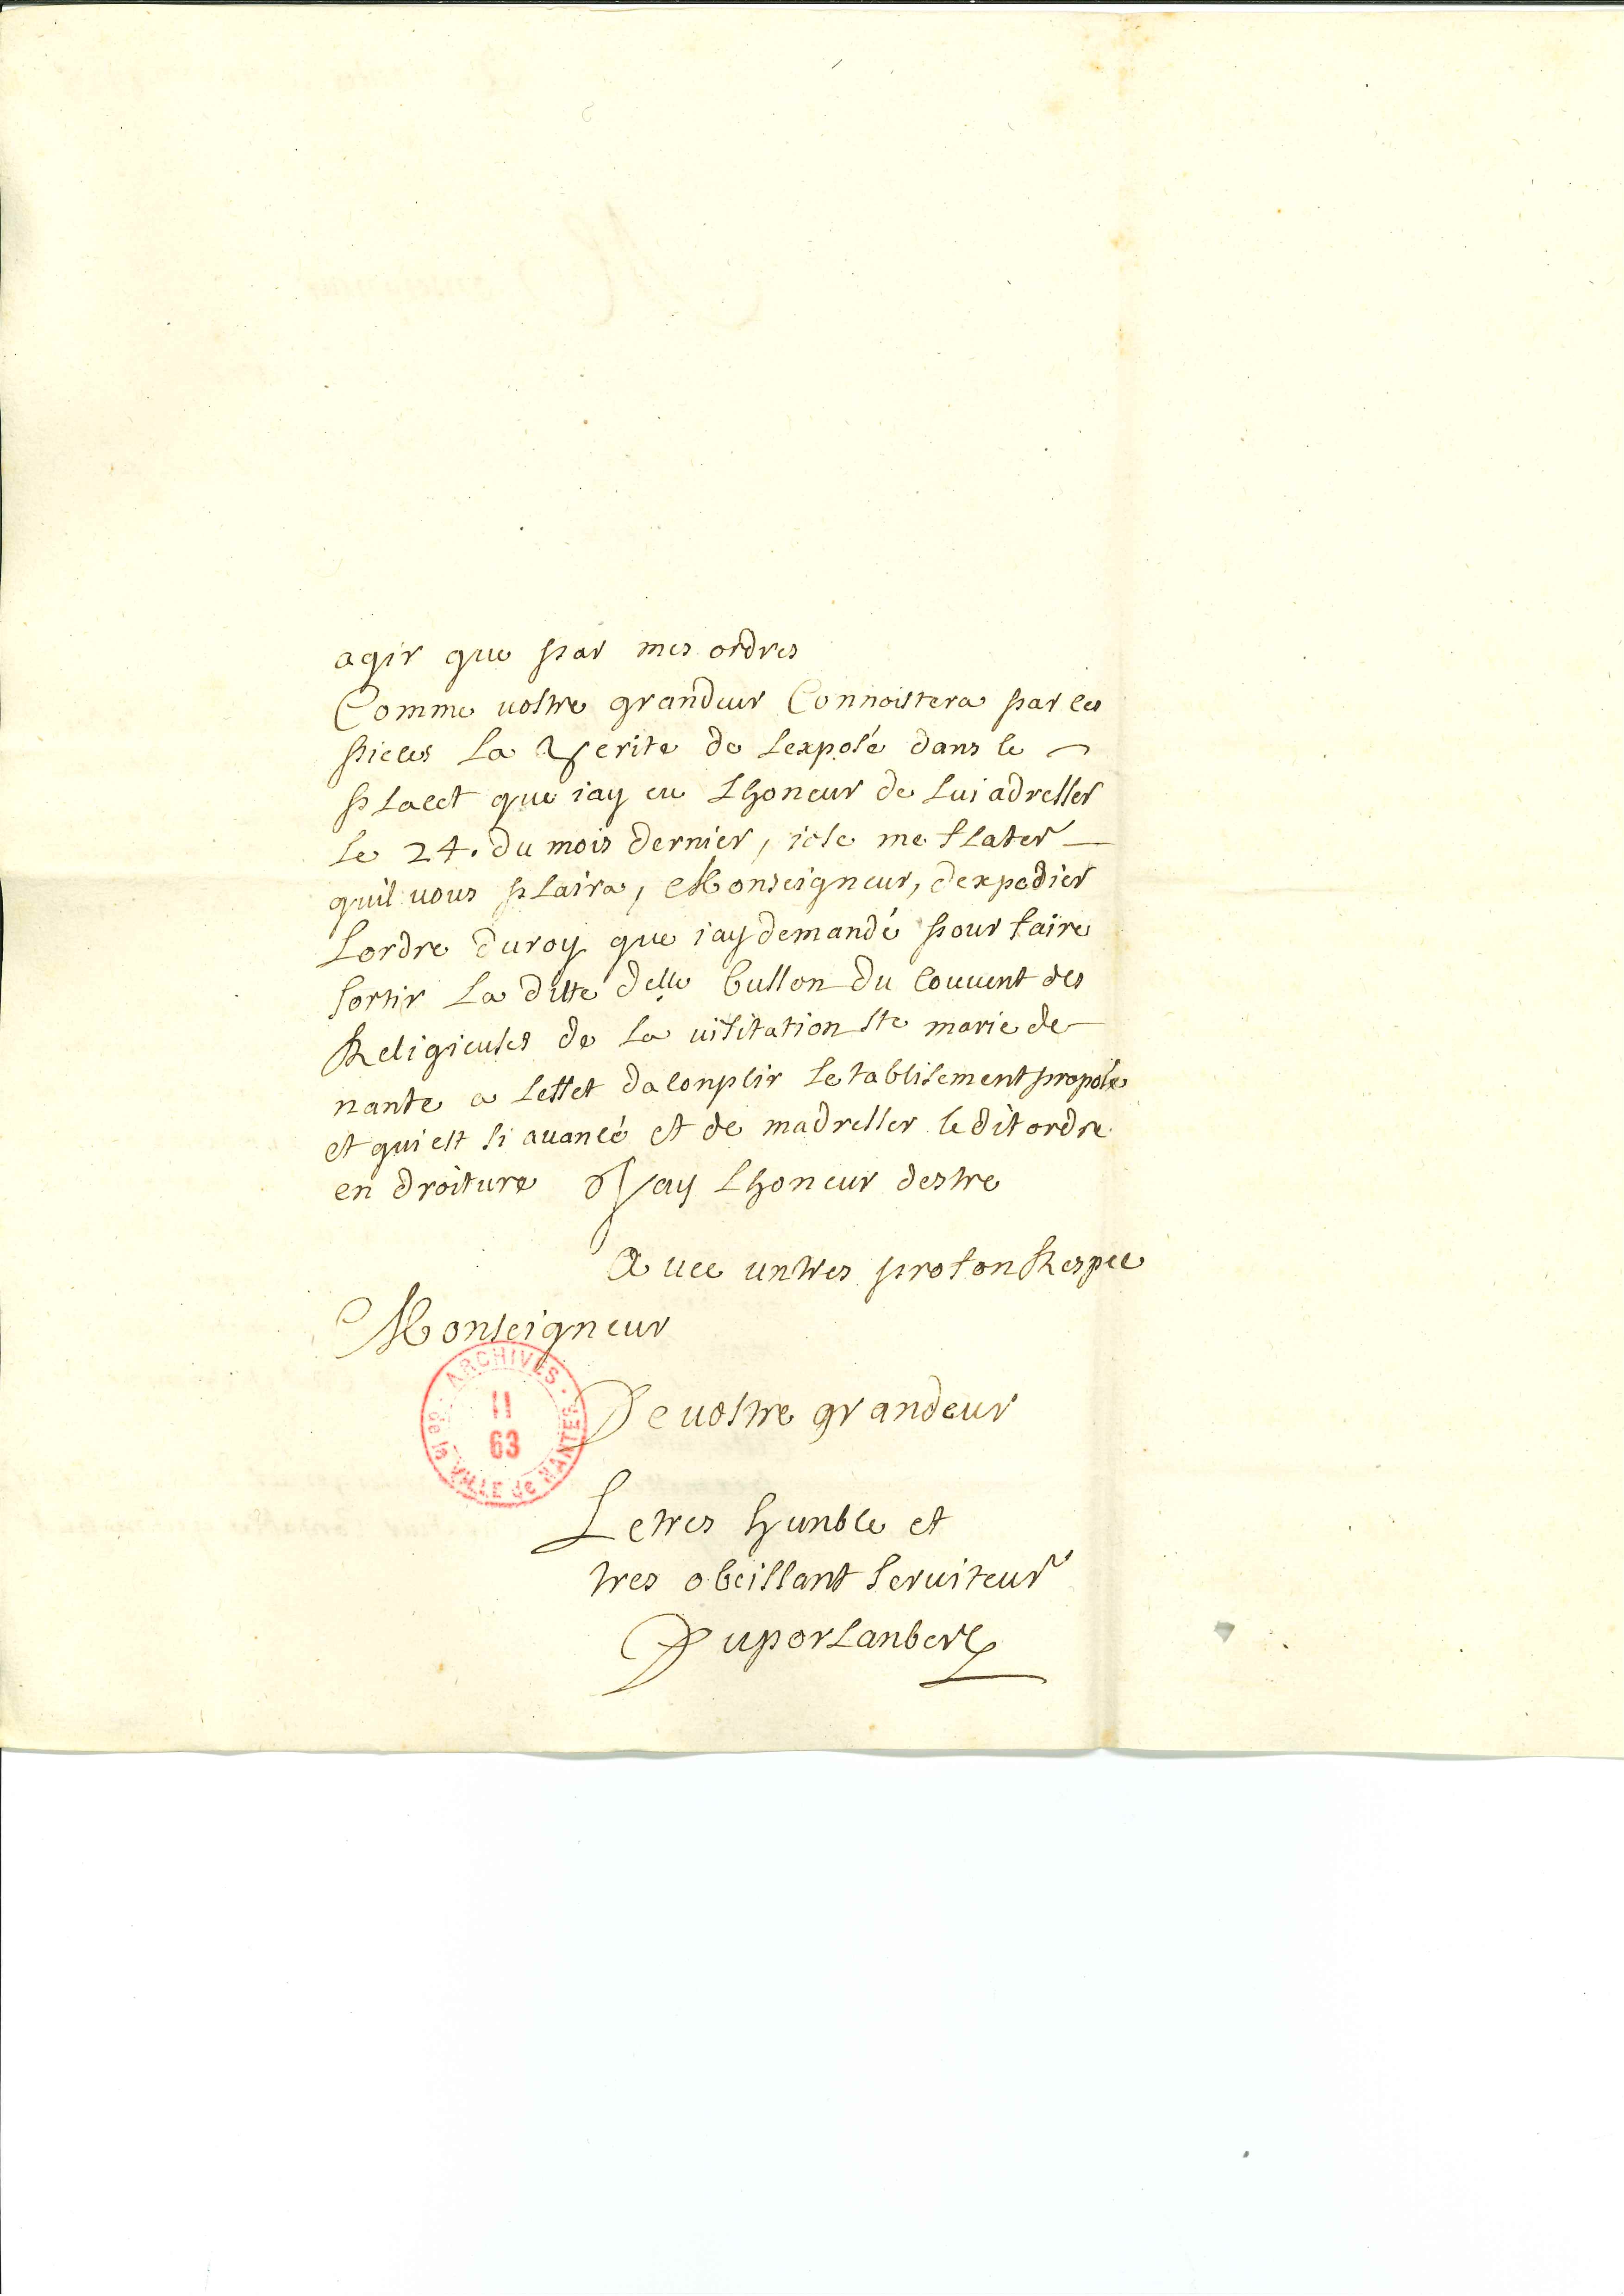 agir que par mes ordres
Comme vostre grandeur Connoistera par les
pieces La Verite de Lexposé dans le
placet que iay eu Lhoneur de Lui adresser
Le 24. du mois dernier, iose me flater
quil vous plaira, Monseigneur, dexpedier
Lordre du roy que iay demandé pour faire
sortir La ditte delle busson du couvent des
Religieuses de La visitation ste marie de
nante a Leffet daconplir Letablisement propose
et qui est si avancé et de madresser le dit ordre
en droiture Jay Lhoneur destre
Avec un tres profon Respec
Monseigneur
De vostre grandeur
Le tres hunble et
tres obeissant serviteur
Duporlanbert
ARCHIVES
II
63
de la VILLE de NANTES